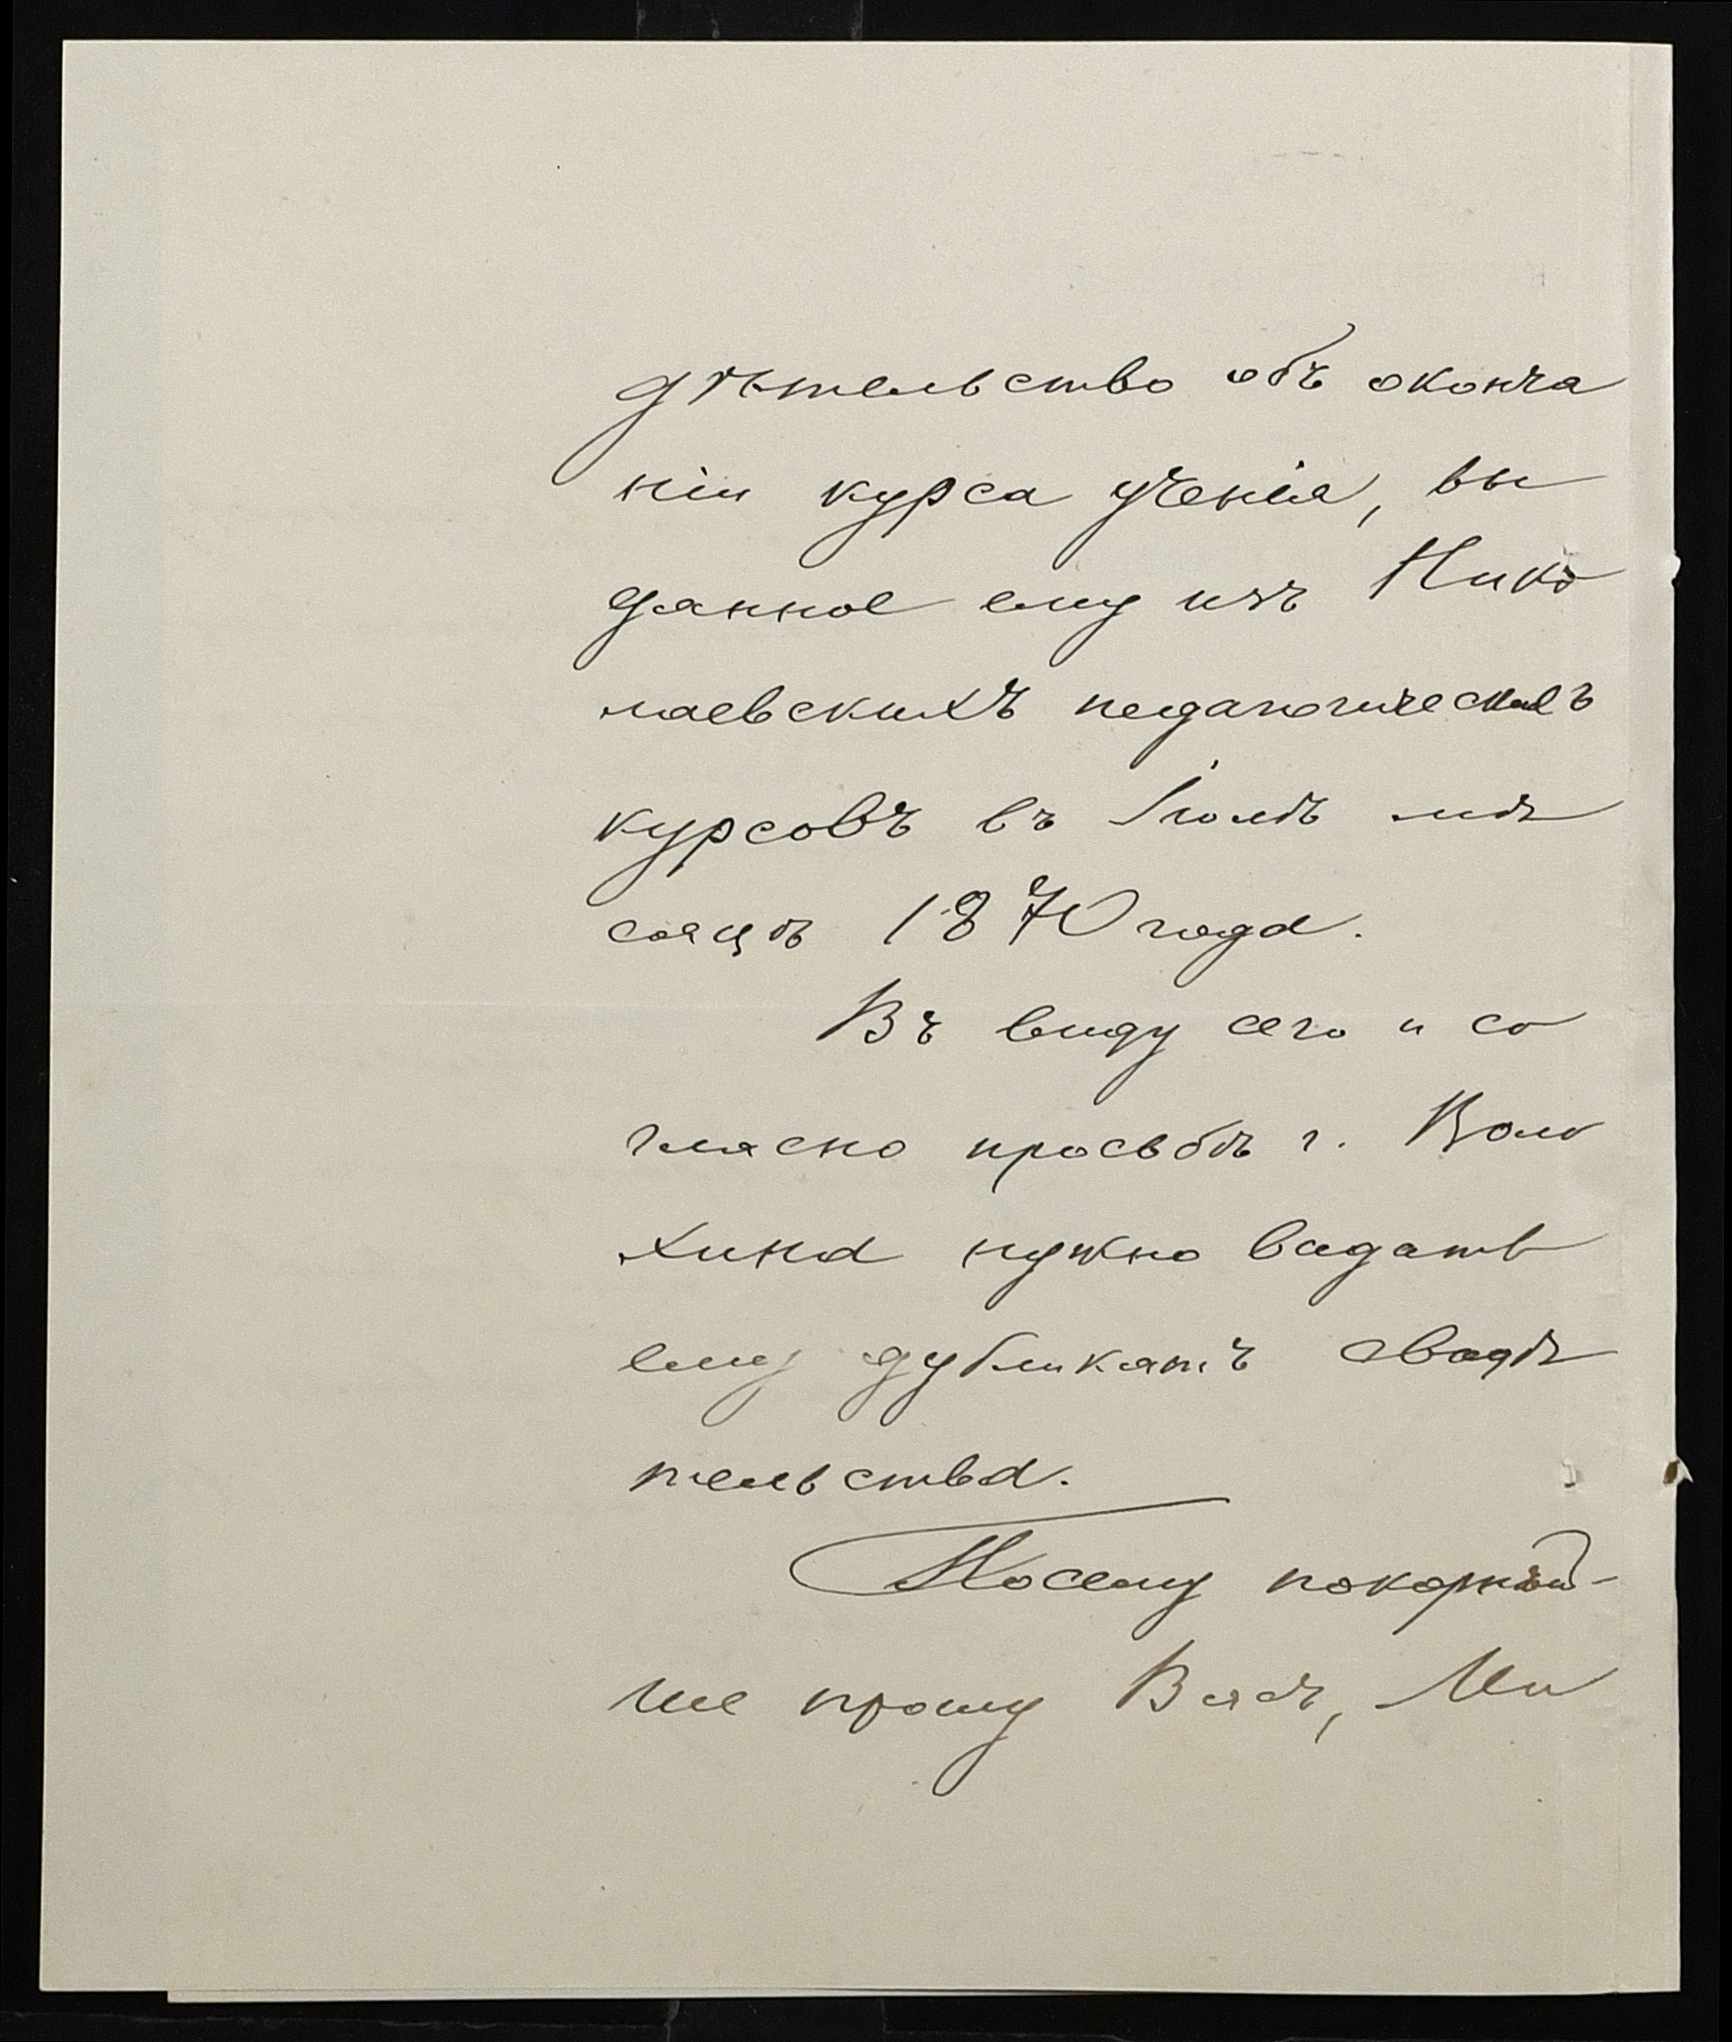 дѣтельство объ оконча
ніи курса ученія, вы
данное ему изъ Нико
лаевскихъ педагогическихъ
курсовъ въ Іюлѣ мѣ
сяцѣ 1870 года.
Въ виду сего и со
гласно просьбѣ г. Воло
хина нужно выдать
ему дубликатъ свидѣ
тельства.
Посему покорнѣй-
ше прошу Васъ, Ми